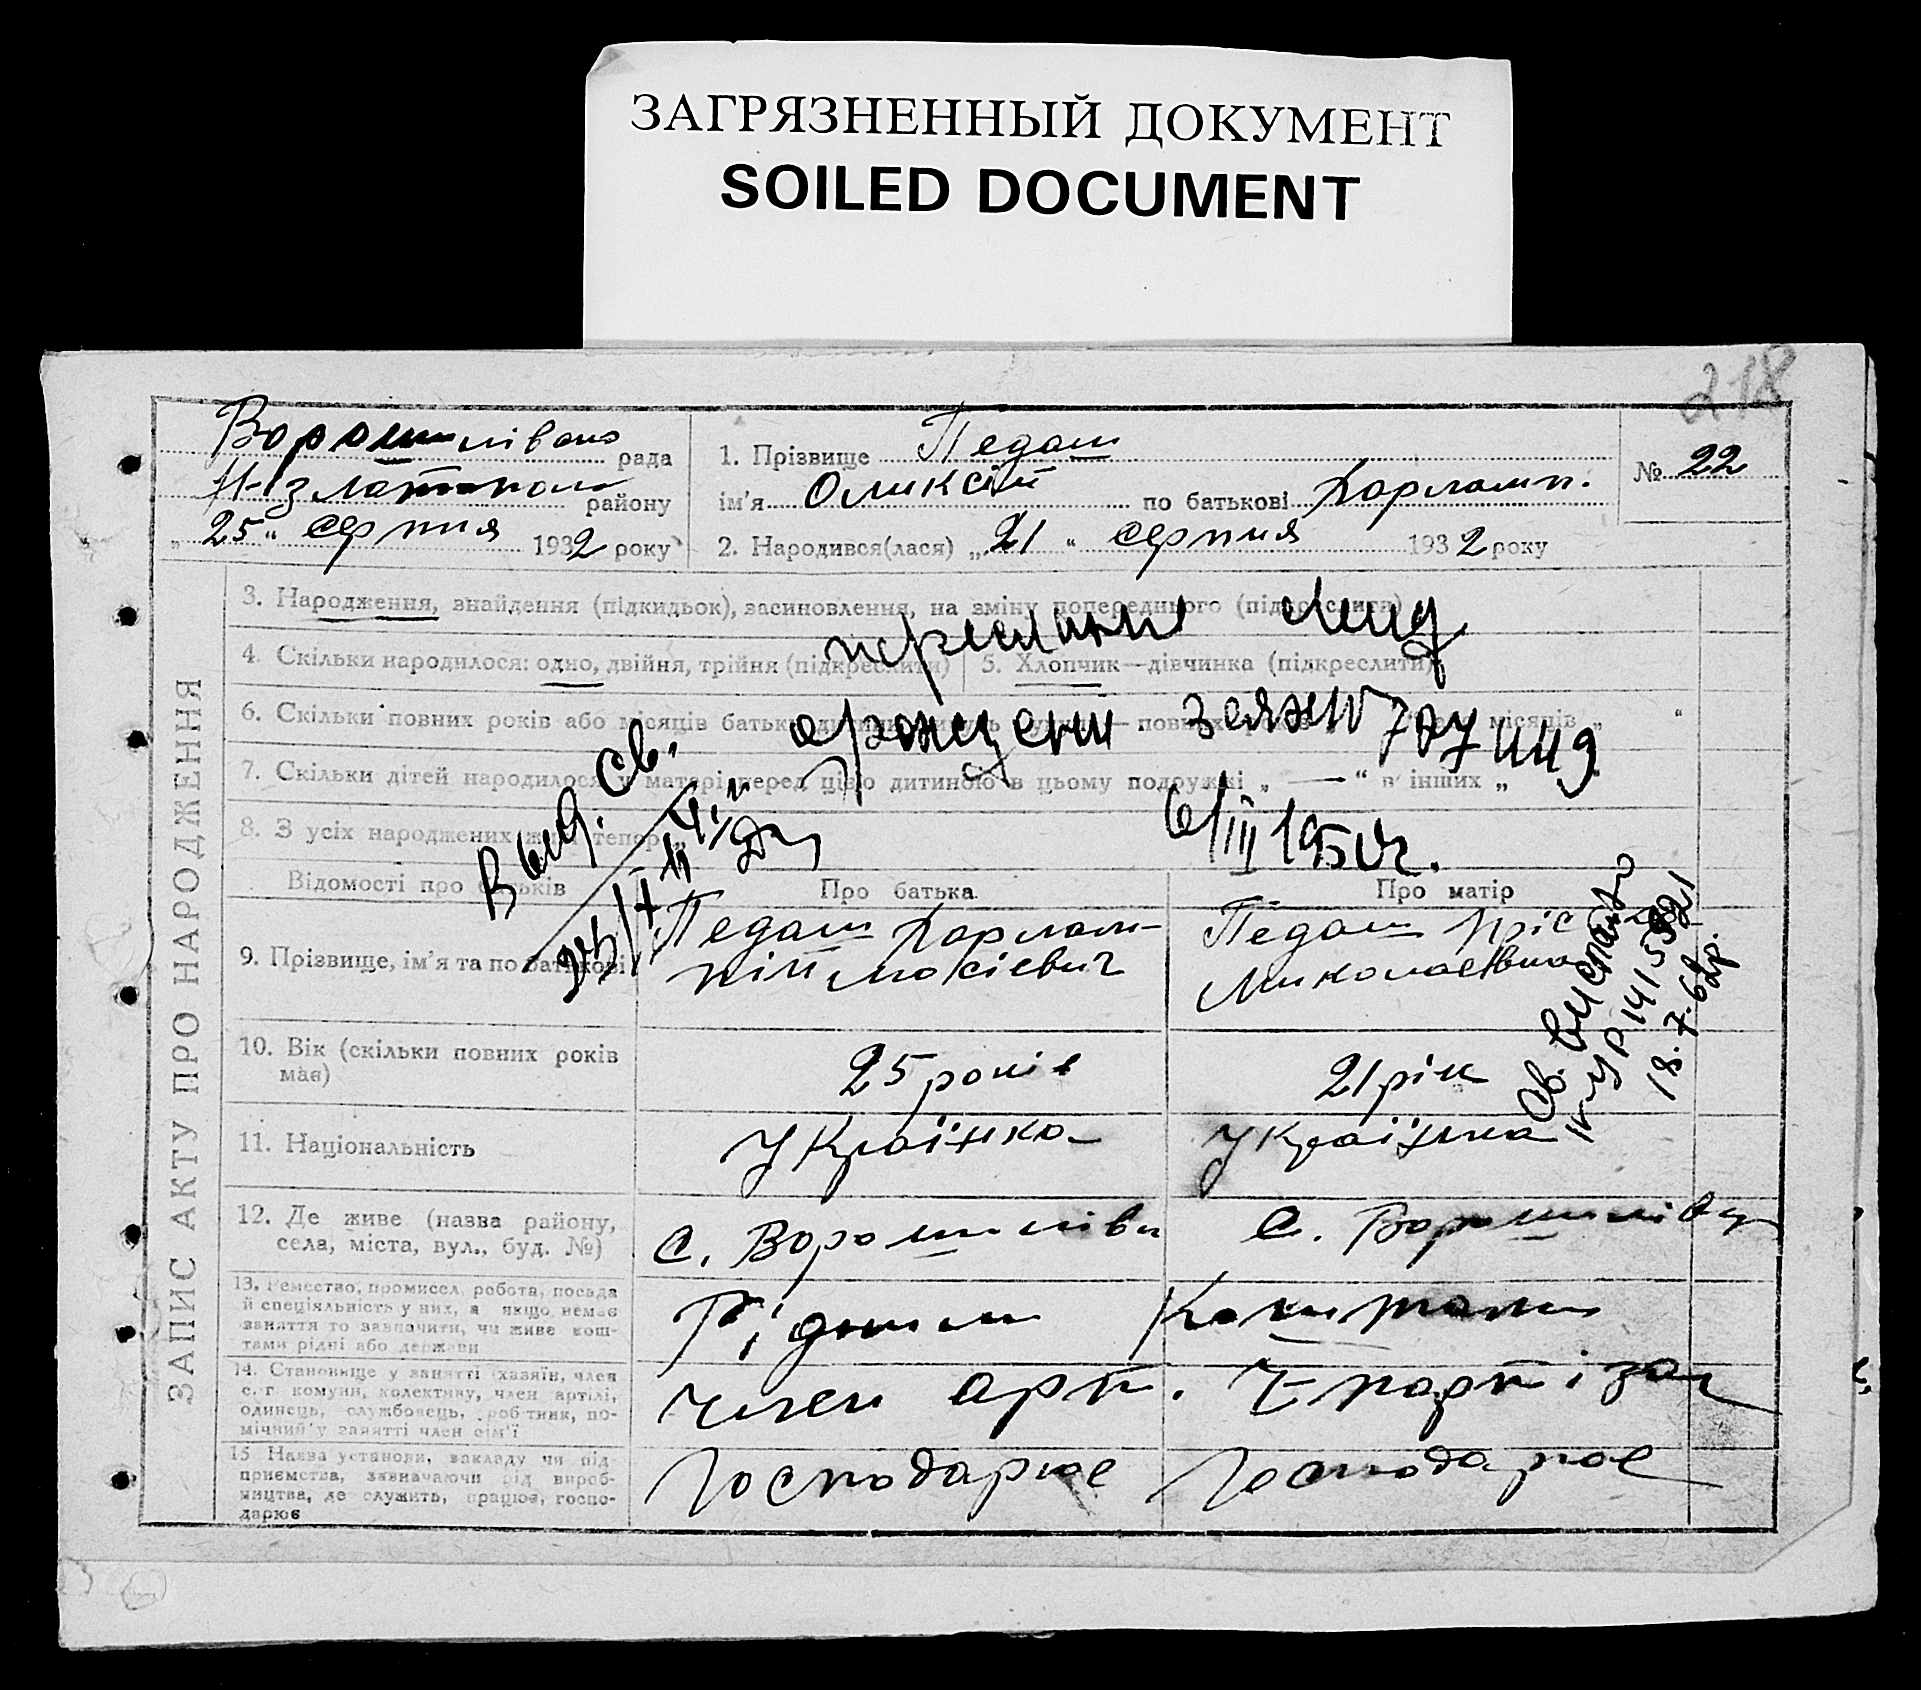 ЗАГРЯЗНЕННЫЙ ДОКУМЕНТ
SOILED DOCUMENT
218
Ворошилівська рада
Н-Златопол району
„25“ серпня 1932 року
1. Прізвище Педаш
ім'я Оликсій по батькові Харламп.
2. Народився(лася) „21“ серпня 1932 року
№ 22
ЗАПИС АКТУ ПРО НАРОДЖЕННЯ
3. Народження, знайдення (підкидьок), засиновлення, на зміну попереднього (підкреслити)
4. Скільки народилося: одно, двійня, трійня (підкреслити)
5. Хлопчик—дівчинка (підкреслити)
6. Скільки повних років або місяців батьки
повних місяців „ “
7. Скільки дітей народилося у матері перед цією дитиною в цьому подружжі „ — “ в інших „
8. З усіх народжених живі тепер
6/III 1950г.
Выд. св.
Відомості про батьків
Про батька
Про матір
9. Прізвище, ім'я та по батькові
Педаш Харлам-
пій Мокієвич
Педаш
Миколаевна
Св.
УР 141592
18.7.62р.
10. Вік (скільки повних років
має)
25 років
21 рік
11. Національність
Українка
Українка
12. Де живе (назва району,
села, міста, вул., буд. №)
с. Ворошилівка
с. Ворошилівка
13. Ремество, промисел, робота, посада
й спеціяльність у них, а якщо немає
заняття то зазначити, чи живе кош-
тами рідні або держави
14. Становище у занятті (хазяїн, член
с.-г. комуни, колективу, член артілі,
одинець, службовець, робітник, по-
мічний у занятті член сім'ї
Член арт. Ч партізан
15 Назва установи, закладу чи під-
приємства, зазначаючи рід вироб-
ництва, де служить, працює, госпо-
дарює
Господарює
Господарює